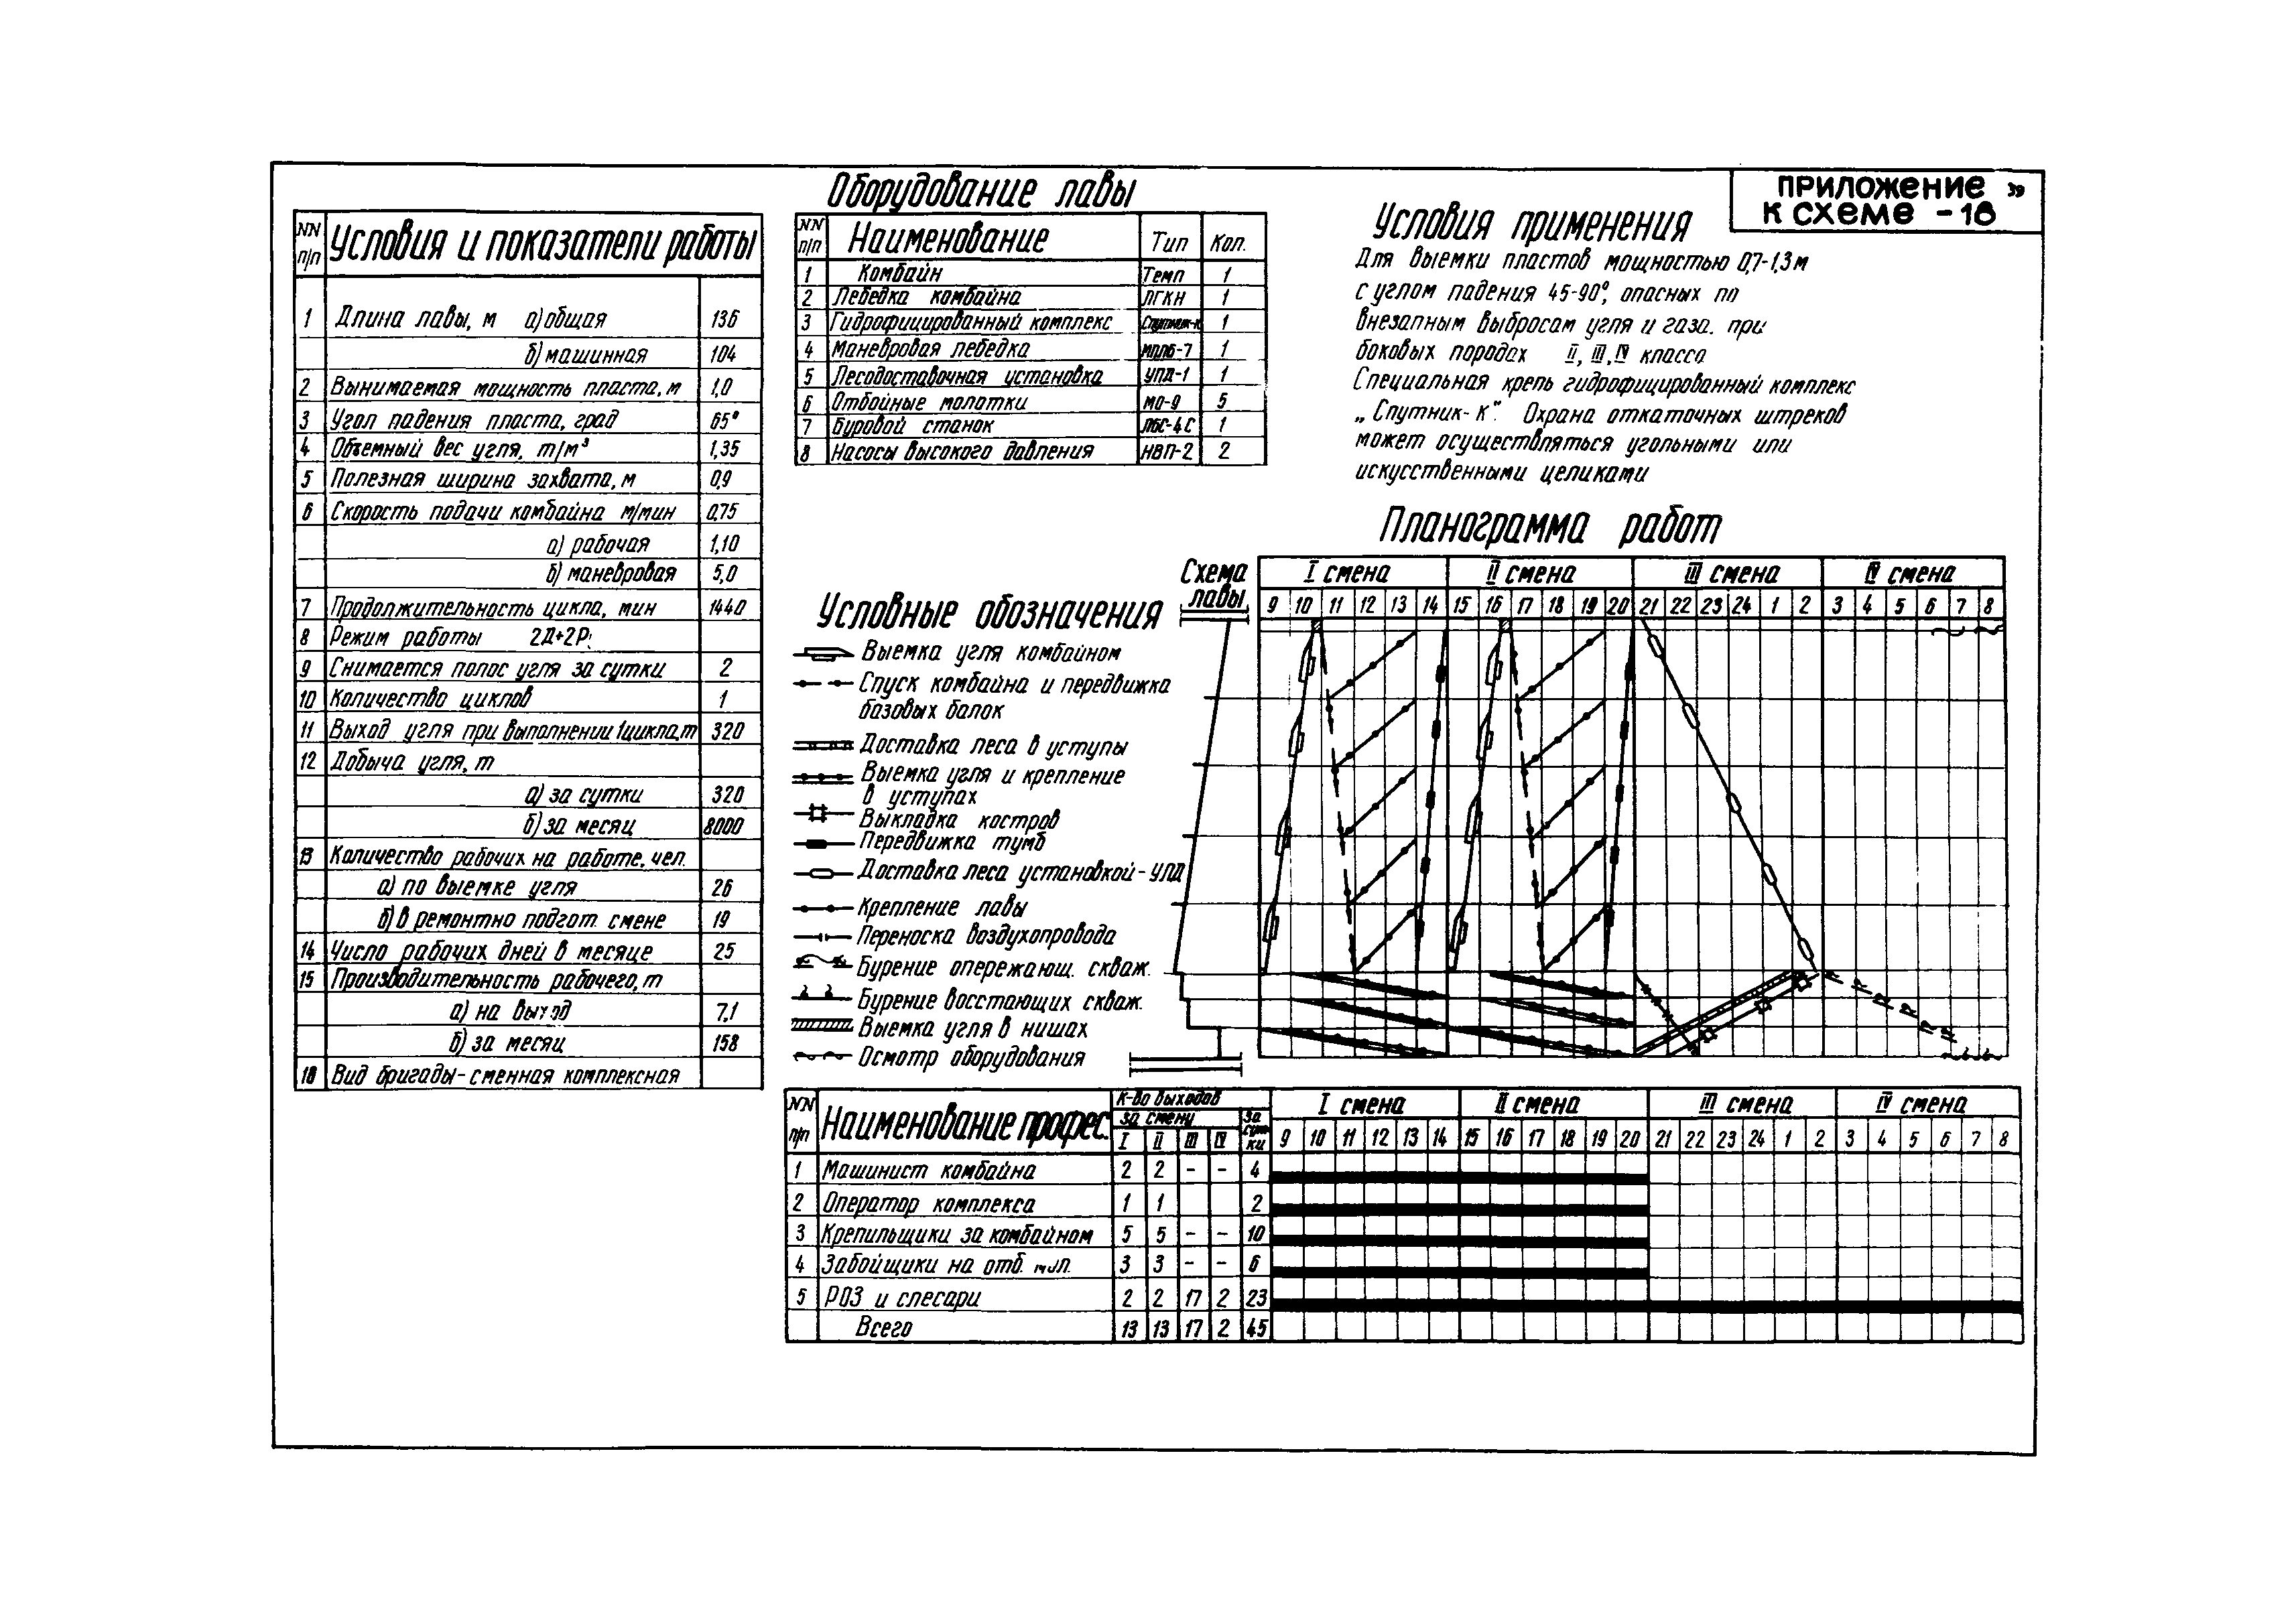 Приложение
к схеме - 18
NN п/п Условия и показатели работы
1 Длина лавы, м а) общая 136
б) машинная 104
2 Вынимаемая мощность пласта, м 1,0
3 Угол падения пласта, град 65°
4 Объемный вес угля, т/м³ 1,35
5 Полезная ширина захвата, м 0,9
6 Скорость подачи комбайна м/мин 0,75
а) рабочая 1,10
б) маневровая 5,0
7 Продолжительность цикла, мин 1440
8 Режим работы 2Д+2Р
9 Снимается полос угля за сутки 2
10 Количество циклов 1
11 Выход угля при выполнении 1цикла,т 320
12 Добыча угля, т
а) за сутки 320
б) за месяц 8000
13 Количество рабочих на работе, чел.
а) по выемке угля 26
б) в ремонтно подгот. смене 19
14 Число рабочих дней в месяце 25
15 Производительность рабочего, т
а) на выход 7,1
б) за месяц 158
Вид бригады-сменная комплексная
Оборудование лавы
NN п/п Наименование Тип Кол.
1 Комбайн Темп 1
2 Лебедка комбайна ЛГКН 1
3 Гидрофицированный комплекс Спутник-к 1
4 Маневровая лебедка 1
5 Лесодоставочная установка УПД-1 1
6 Отбойные молотки МО-9 5
7 Буровой станок ЛБС-4С 1
8 Насосы высокого давления НВП-2 2
Условия применения
Для выемки пластов мощностью 0,7-1,3м
с углом падения 45-90°, опасных по
внезапным выбросам угля и газа. при
боковых породах II, III, IV класса
Специальная крепь гидрофицированный комплекс
„Спутник-К". Охрана откаточных штреков
может осуществляться угольными или
искусственными целиками
Условные обозначения
Выемка угля комбайном
Спуск комбайна и передвижка
базовых балок
Доставка леса в уступы
Выемка угля и крепление
в уступах
Выкладка костров
Передвижка тумб
Доставка леса установкой-УПД
Крепление лавы
Переноска воздухопровода
Бурение опережающ. скваж.
Бурение восстающих скваж.
Выемка угля в нишах
Осмотр оборудования
Планограмма работ
Схема
лавы
I смена II смена III смена IV смена
9 10 11 12 13 14 15 16 17 18 19 20 21 22 23 24 1 2 3 4 5 6 7 8
NN п/п Наименование профес. К-во выходов
за смену за сутки
I II III IV
I смена II смена III смена IV смена
9 10 11 12 13 14 15 16 17 18 19 20 21 22 23 24 1 2 3 4 5 6 7 8
1 Машинист комбайна 2 2 - - 4
2 Оператор комплекса 1 1 2
3 Крепильщики за комбайном 5 5 - - 10
4 Забойщики на отб. мол. 3 3 - - 6
5 РОЗ и слесари 2 2 17 2 23
Всего 13 13 17 2 45